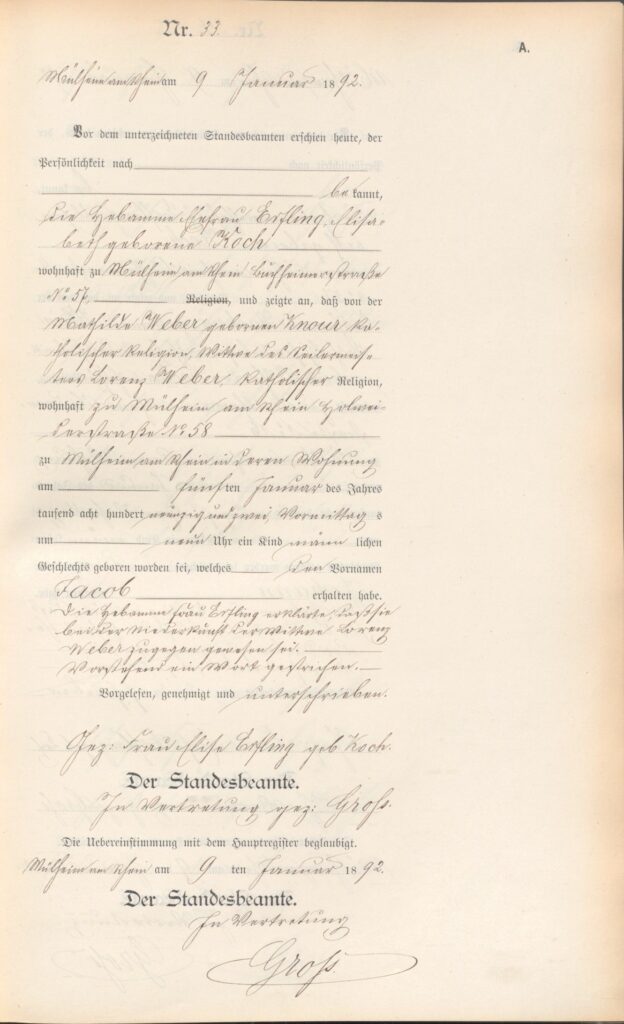 Nr. 33.
A.
Mülheim am Rhein am 9 Januar 1892.
Vor dem unterzeichneten Standesbeamten erschien heute, der
Persönlichkeit nach
be kannt,
die Hebamme Ehefrau Esfling, Elisa-
beth geborene Koch
wohnhaft zu Mülheim am Rhein Buchheimerstraße
No 57, Religion, und zeigte an, daß von der
Mathilde Weber gebornen Knour ka-
tholischer Religion, Wittwe des Seilermeis-
ters Lorenz Weber, katholischer Religion,
wohnhaft zu Mülheim am Rhein Holwei-
derstraße No 58
zu Mülheim am Rhein in deren Wohnung
am fünften Januar des Jahres
tausend acht hundert neunzig und zwei Vormittags
um neun Uhr ein Kind männlichen
Geschlechts geboren worden sei, welches den Vornamen
Jacob erhalten habe.
Die Hebamme Frau Esfling erklärte, daß sie
bei der Niederkunft der Wittwe Lorenz
Weber zugegen gewesen sei.
Vorstehend ein Wort gestrichen.
Vorgelesen, genehmigt und unterschrieben.
Gez: Frau Elise Esfling geb Koch.
Der Standesbeamte.
In Vertretung gez: Groß.
Die Uebereinstimmung mit dem Hauptregister beglaubigt.
Mülheim am Rhein am 9 ten Januar 1892.
Der Standesbeamte.
In Vertretung
Groß.